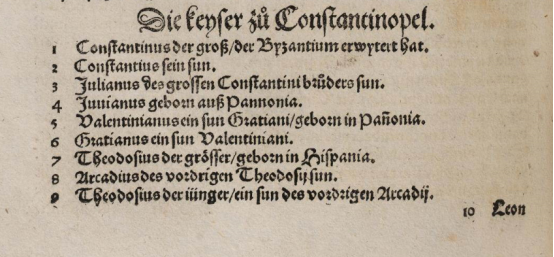 Die keyser zů Constantinopel.
1 Constantinus der groß/der Byzantium erwytert hat.
2 Constantius sein sun.
3 Julianus des grossen Constantini brůders sun.
4 Juuianus geborn auß Pannonia.
5 Valentinianus ein sun Gratiani/geborn in Pañonia.
6 Gratianus ein sun Valentiniani.
7 Theodosius der grösser/geborn in Hispania.
8 Arcadius des vordrigen Theodosij sun.
9 Theodosius der iünger/ein sun des vordrigen Arcadij.
10 Leon